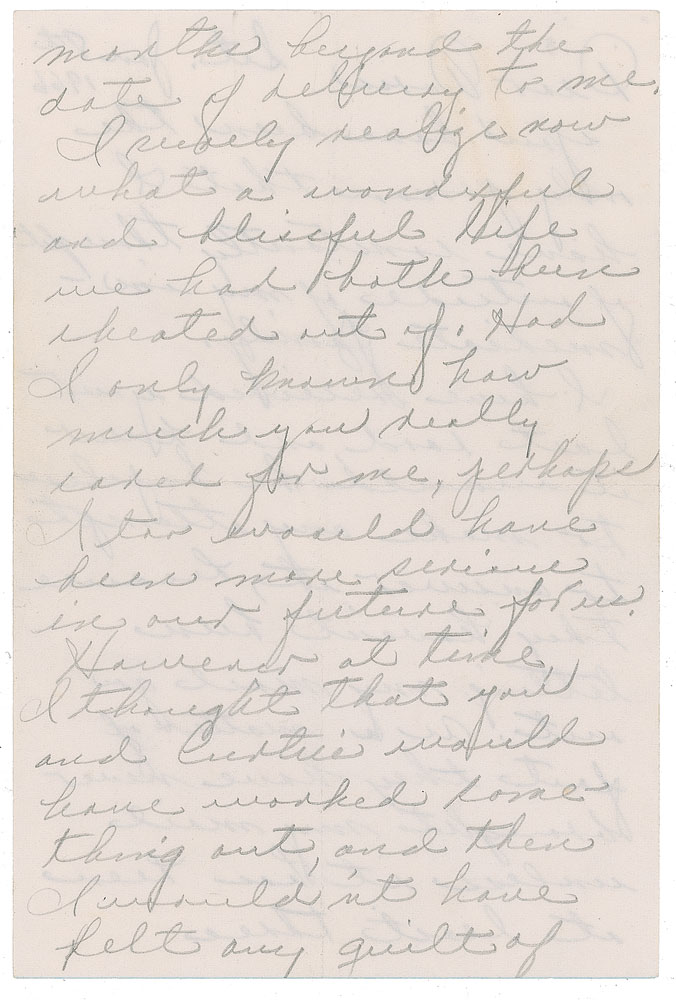 months beyond the
date of delivery to me.
I surely realize now
what a wonderful
and blissful life
we had both been
cheated out of. Had
I only known how
much you really
cared for me, perhaps
I too would have
been more serious
in our future for us.
However at time,
I thought that you
and Curtis would
have worked some-
thing out, and then
I would'nt have
felt any guilt of